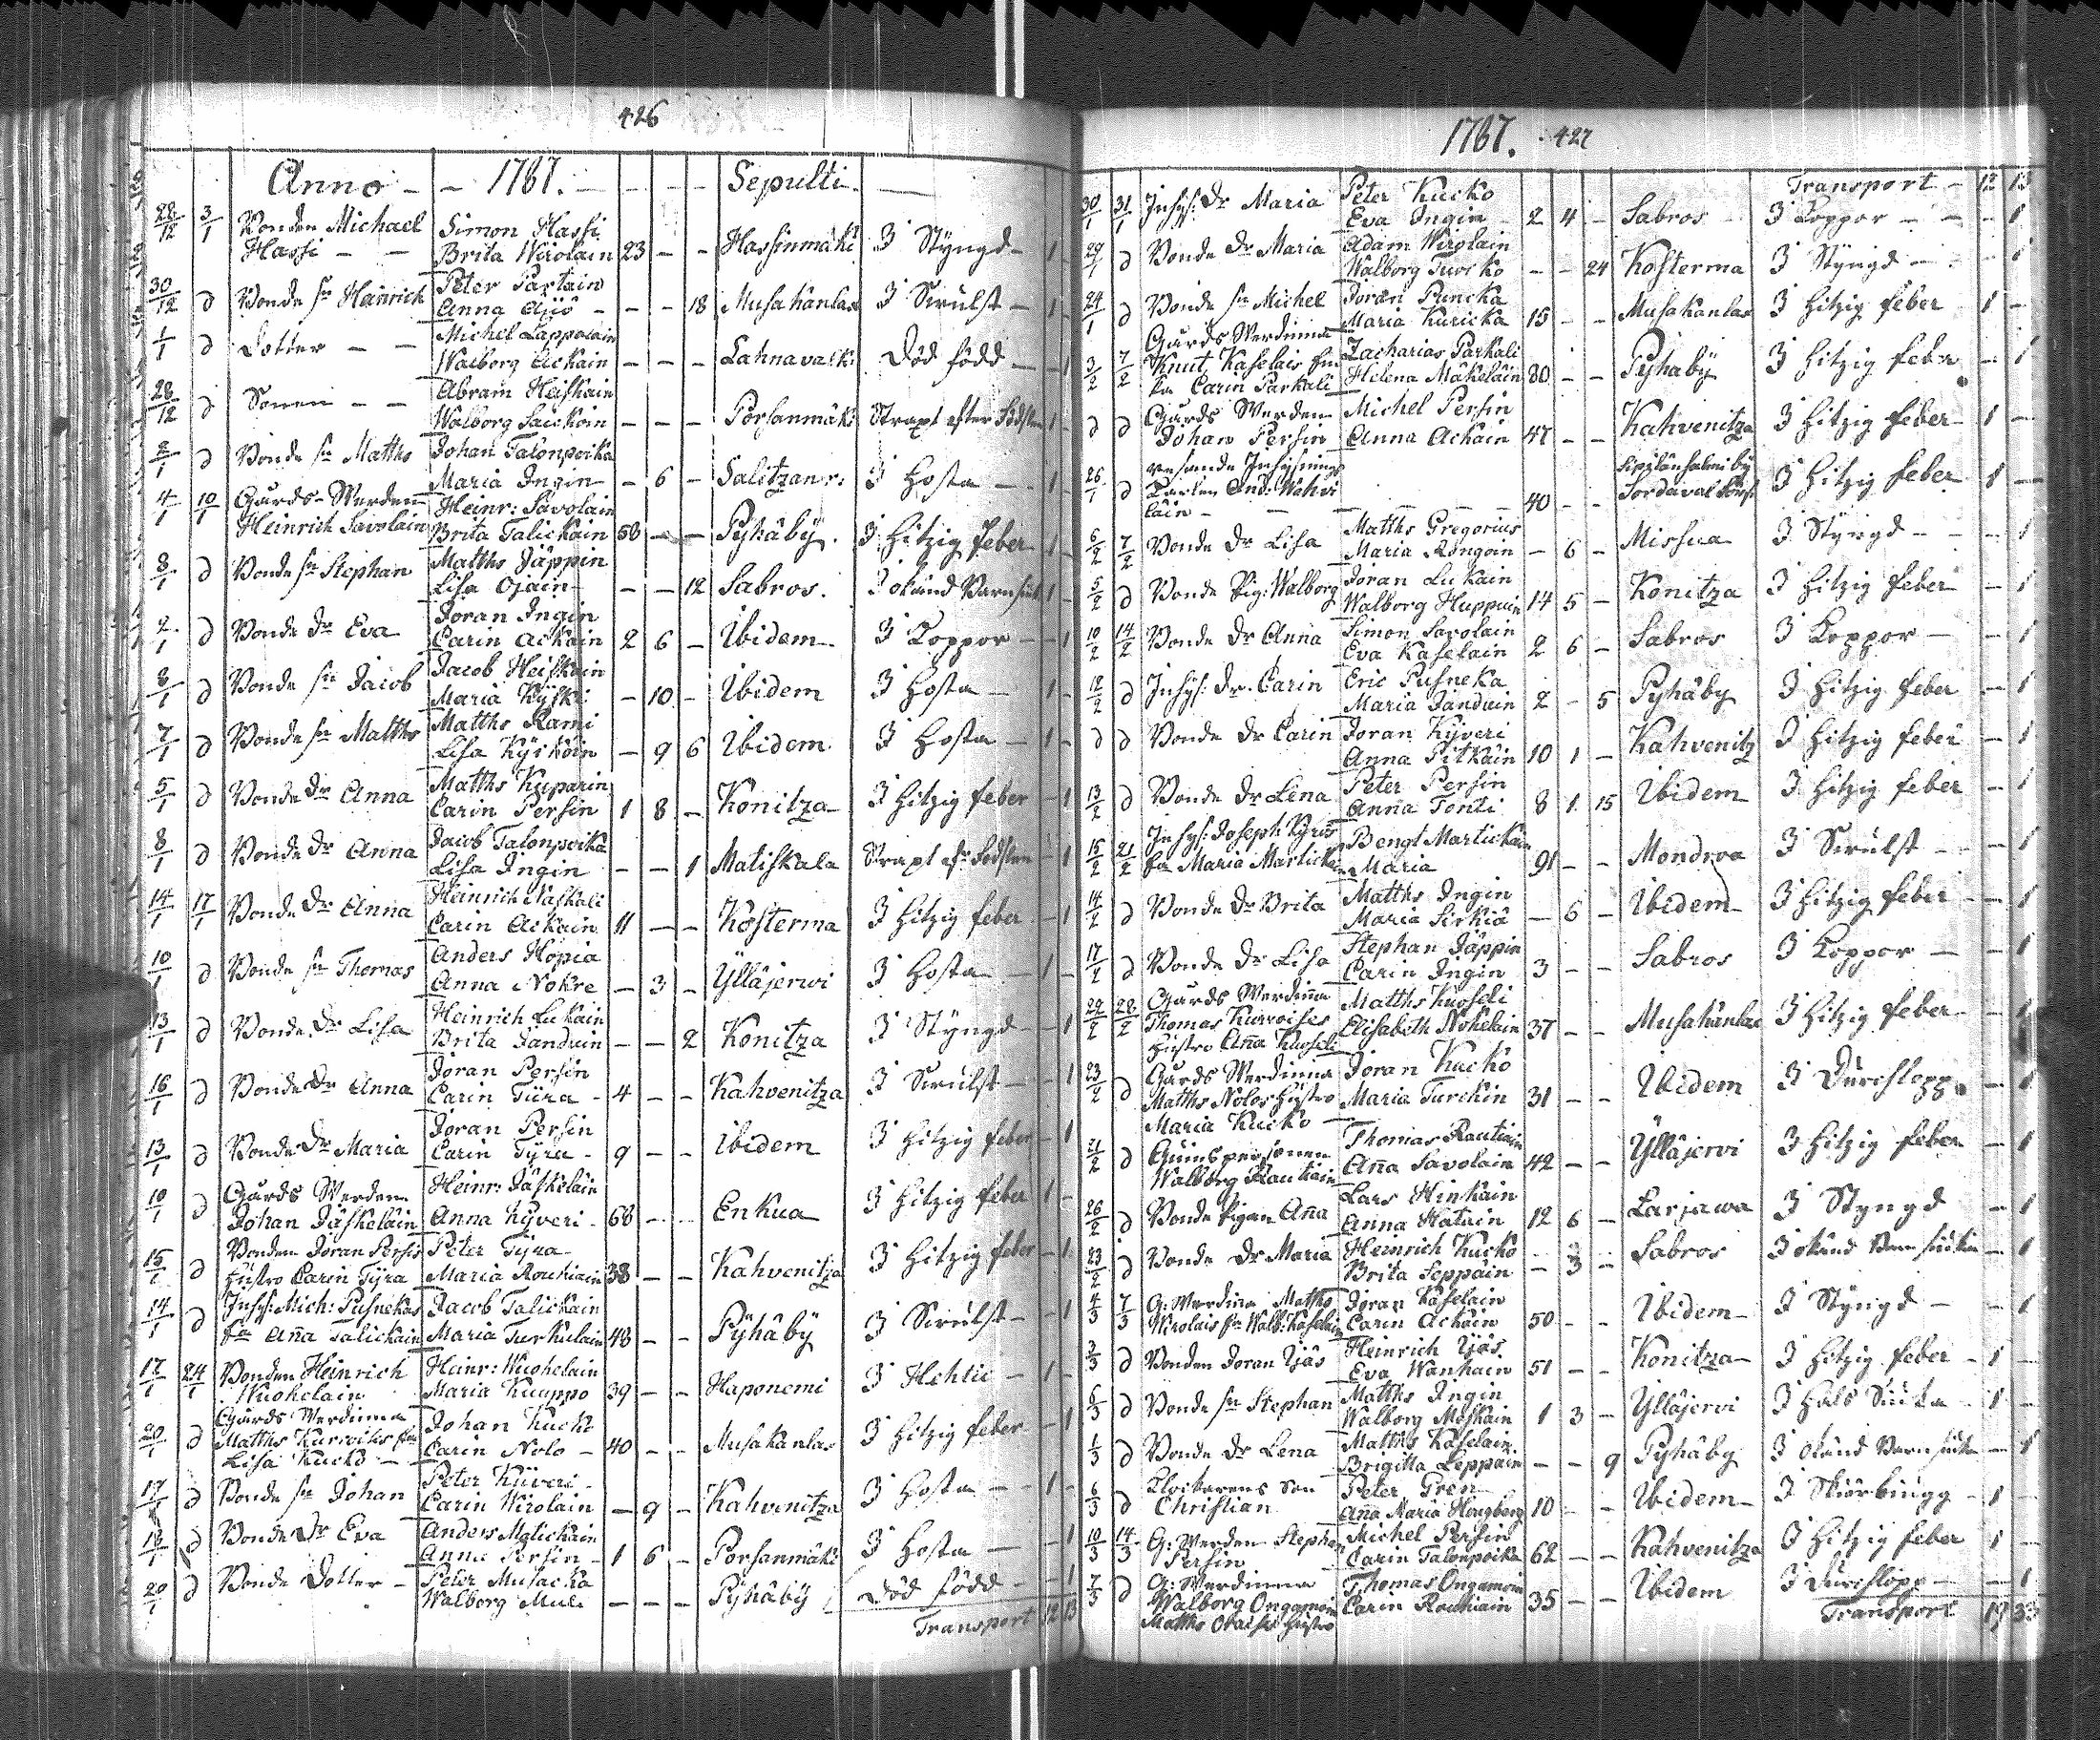 426
Anno - - 1767. - - - - Sepulti. -
28/12 3/1 Bonden Michael Simon Hassi
Hassi - - Brita Wirolain 23 - - Hassinmäki J Styngd - 1 -
30/12 d Bonde sn Heinrich Peter Partain
Anna Äijö - - - 18 Musakanlax J Swulst - 1 -
1/1 d Dotter - - Michel Lappalain
Walborg Ackain - - - Lahnavalki Död född - - 1
28/12 d Sonen - - Abram Heiskain
Walborg Laukain - - - Porsanmäki Strapt efter Födslen 1 -
2/1 d Bonde sn Matths Johan Talonpoika
Maria Ingin - 6 - Salitzanr: J Hosta - 1 -
4/1 10/1 Gårds-Werden Heinr: Savolain
Heinrich Savolain Brita Talickain 58 - - Pyhäby. J Hitzig feber 1 -
8/1 d Bonde sn Stephan Matths Jäppin
Lisa Ojain - - 12 Sabros. J okänd Barnsiuk 1 -
2/1 d Bonde dr Eva Joran Ingin
Carin Ackain 2 6 - Ibidem J Koppor - - 1
8/1 d Bonde sn Jacob Jacob Heiskain
Maria Kyski - 10 - Ibidem J Hosta - 1 -
7/1 d Bonde sn Matths Matths Rami
Lisa Kycköin - 9 6 Ibidem J Hosta - 1 -
5/1 d Bonde dr Anna Matths Kuparin
Carin Persin 1 8 - Konitza J Hitzig feber - 1
8/1 d Bonde dr Anna Jacob Talonpoika
Lisa Ingin - - 1 Matiskala Strapt efr Födslen - 1
14/1 17/1 Bonde dr Anna Heinrich Naskali
Carin Ackain 11 - - Kosterma J Hitzig feber - 1
10/1 d Bonde sn Thomas Anders Hopia
Anna Nokre - 3 - Ylläjerwi J Hosta - 1 -
13/1 d Bonde dr Lisa Heinrich Lukain
Brita Janduin - - 2 Konitza J Styngd - - 1
16/1 d Bonde dr Anna Joran Persin
Carin Tyra - 4 - - Kahvenitza J Swulst - - 1
13/1 d Bonde dr Maria Joran Persin
Carin Tyra - 9 - - Ibidem J Hitzig feber - 1
10/1 d Gårds Werden Heinr: Jäskeläin
Johan Jäskeläin Anna Kyveri - 68 - - Enkua J Hitzig feber 1 -
15/1 d Bonden Joran Persis Peter Tyra
Hustro Carin Tyra Maria Rouhiain 38 - - Kahvenitza J Hitzig feber - 1
14/1 d Inhys: Mich: Pusnekas Jacob Talickain
fru Anna Talickain Maria Turkulain 48 - - Pyhäby J Swulst - - 1
17/1 24/1 Bonden Heinrich Heinr: Wuohelain
Wuohelain Maria Kauppo 39 - - Haponemi J Hehtic - 1 -
20/1 d Gårds Werdinna
Matths Kurwises fru Johan Kucko
Lisa Kucko - Carin Nolo - 40 - - Musakanlax J Hitzig feber - 1
17/1 d Bonde sn Johan Peter Kyveri -
Carin Wirolain - 9 - Kahvenitza J Hosta - 1 -
18/1 d Bonde dr Eva Anders Malickain
Anna Persin - 1 6 - Porsanmäki J Hosta - - 1
20/1 d Bonde Dotter - Peter Musacka
Walborg Muli - - - Pyhäby Död född - - 1
Transport 12 13
1767. 427
Transport - 12 13
30/1 31/1 Inhys: dr Maria Peter Kucko
Eva Ingin - 2 4 - Sabros - J Koppor - - - 1
29/1 d Bonde dr Maria Adam Wirolain
Walborg Turcko - - 24 Kosterma J Styngd - - 1
24/1 d Bonde sn Michel Joran Puncka
Maria Kuricka 15 - - Musakanlax J Hitzig feber 1 -
3/2 7/2 Gårds Werdinna
Knut Kaselais fru Zacharias Parkali
Carin Parkali Helena Mäkeläin 80 - - Pyhäby J Hitzig feber - 1
d d Gårds Werden Michel Persin
Johan Persin Anna Ackain 47 - - Kahvenitza J Hitzig feber - 1 -
26/1 d resande Inhysnings
Karlen And: Wahvi
lain - - - - 40 - - Sordaval J Hitzig feber 1 -
6/2 7/2 Bonde dr Lisa Matths Gregorius
Maria Rongain - 6 - Missua J Styngd - - - 1
5/2 d Bonde Pig: Walborg Joran Lukain
Walborg Huppuin 14 5 - Konitza J Hitzig feber - 1
10/2 14/2 Bonde dr Anna Simon Savolain
Eva Kaselain 2 6 - Sabros J Koppor - - 1
12/2 d Inhys: dr. Carin Eric Pusneka
Maria Janduin 2 - 5 Pyhäby J Hitzig feber - 1
d d Bonde dr Carin Joran Kyveri
Anna Pitkäin 10 1 - Kahvenitz J Hitzig feber - 1
13/2 d Bonde dr Lena Peter Persin
Anna Tonti 8 1 15 Ibidem J Hitzig feber - 1
15/2 21/2 Inhys: Joseph Kyrös Bengt Martickain
fru Maria Martickain Maria 91 - - Mondroa J Swulst - - 1
14/2 d Bonde dr Brita Matths Ingin
Maria Sirkiä - 6 - Ibidem J Hitzig feber - - 1
17/2 d Bonde dr Lisa Stephan Jäppin
Carin Ingin 3 - - Sabros J Koppor - - 1
22/2 28/2 Gårds Werdinna Matths Kuoseli
Thomas Kurroises Elisabeth Nokelain 37 - - Musakanlax J Hitzig feber - 1
Hustro Anna Kuoseli
23/2 d Gårds Werdinna Joran Kucko
Matths Nolos Hustro Maria Turckin 31 - - Ibidem J Durchlopp - 1
Maria Kucko -
21/2 d Qwinspersonen Thomas Rautiain
Walborg Rautiain Anna Savolain 42 - - Ylläjervi J Hitzig feber - 1
26/2 d Bonde Pigan Anna Lars Hinkain
Anna Hatuin 12 6 - Larjawa J Styngd - 1
23/2 d Bonde dr Maria Heinrich Kucko
Brita Seppäin - 3 - Sabros J okänd Barn siukan - 1
4/3 7/3 G: Werdina Matths Joran Kaselain
Wirolais fru Walb: Kaselain Carin Ackain 50 - - Ibidem - J Styngd - - 1
3/3 d Bonden Joran Ijäs Heinrich Ijäs
Eva Wanhain 51 - - Konitza - J Hitzig feber - 1 -
6/3 d Bonde sn Stephan Matths Ingin
Walborg Moskain 1 3 - Ylläjervi J Hals Siuka - 1 -
1/3 d Bonde dr Lena Matths Kaselain
Brigitta Leppäin - - 9 Pyhäby J okänd Barn siuka - 1
6/3 d Clockarens son Peter Gren
Christian Anna Maria Hougberg 10 - - Ibidem - J Skiörbiugg - 1 -
10/3 14/3 G: Werden Stephan Michel Persin
Persin Carin Talonpoika 62 - - Kahvenitza J Hitzig feber 1 -
7/3 d G: Werdinna Thomas Ongamoin
Walborg Ongamoin Carin Rouhiain 35 - - Ibidem J Durchlopp - - 1
Matths Hustro Transport 19 33